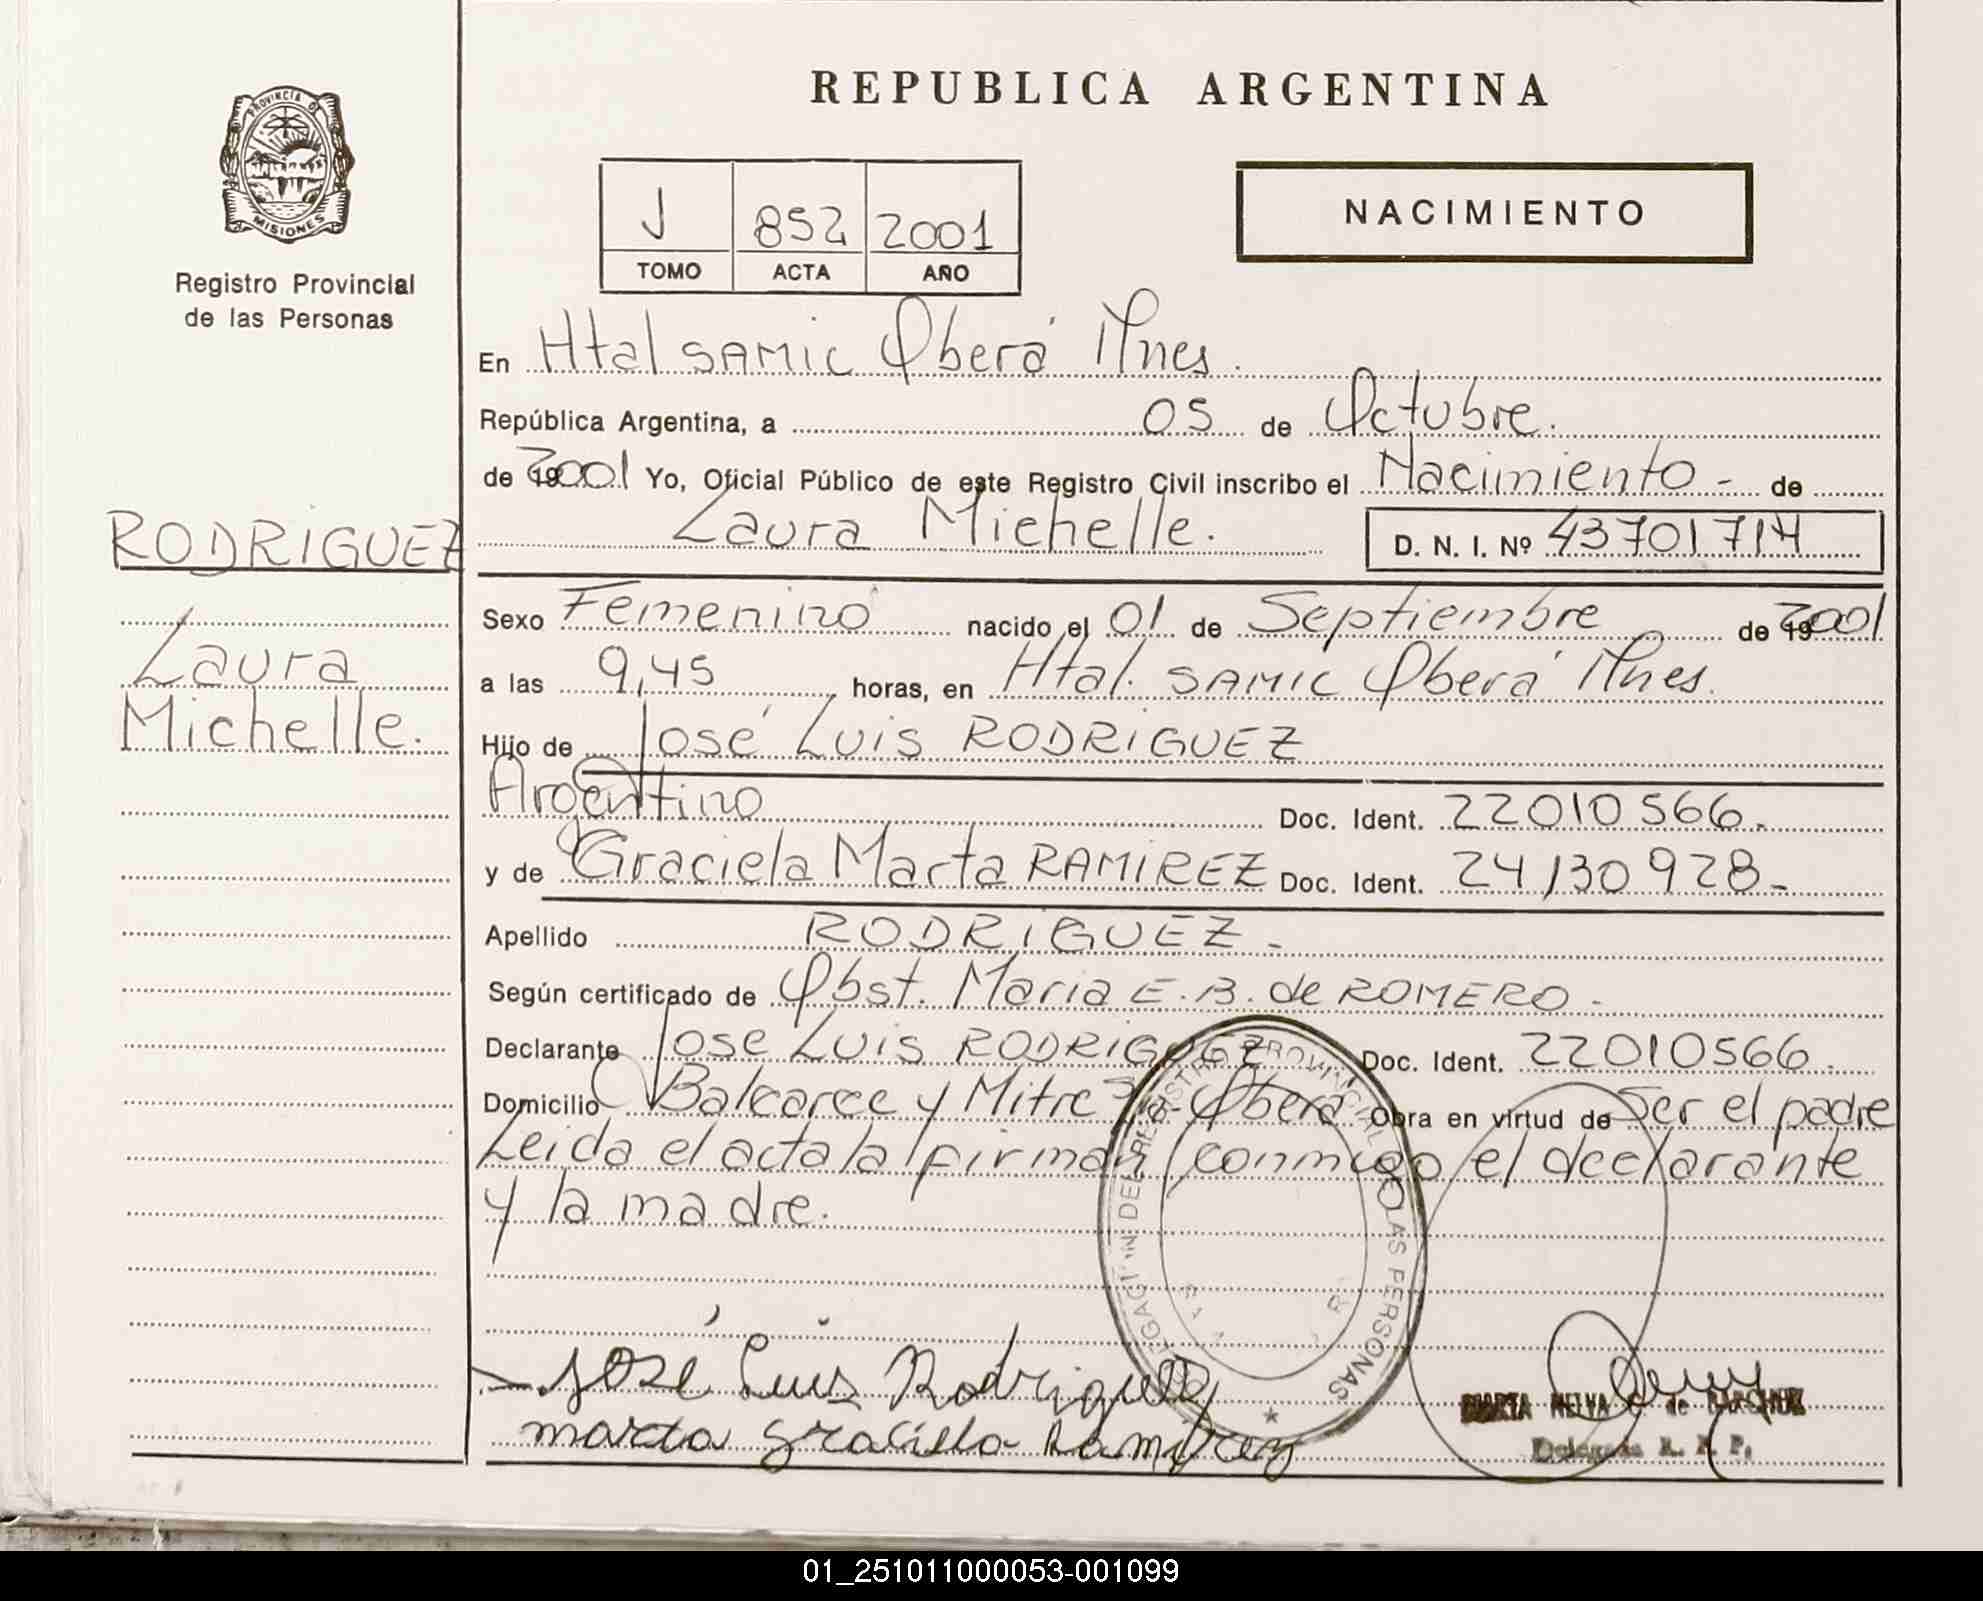 REPUBLICA ARGENTINA
PROVINCIA DE
MISIONES
Registro Provincial
de las Personas
J 852 2001
TOMO ACTA AÑO
NACIMIENTO
En Htal SAMIC Oberá Mnes.
República Argentina, a 05 de Octubre.
de 2001 Yo, Oficial Público de este Registro Civil inscribo el Nacimiento - de
Laura Michelle. D. N. I. Nº 43701714
RODRIGUEZ
Laura
Michelle.
Sexo Femenino nacido el 01 de Septiembre de 19 2001
a las 9,45 horas, en Htal. SAMIC Oberá Mnes.
Hijo de José Luis RODRIGUEZ
Argentino Doc. Ident. 22010566.
y de Graciela Marta RAMIREZ Doc. Ident. 24130928-
Apellido RODRIGUEZ-
Según certificado de Obst. Maria E. B. de ROMERO-
Declarante Jose Luis RODRIGUEZ Doc. Ident. 22010566.
Domicilio Balcarce y Mitre Oberá Obra en virtud de Ser el padre
Leida el acta la firman conmigo el declarante
y la madre.
DEL REGISTRO PROVINCIAL DE LAS PERSONAS
José Luis Rodriguez
marta graciela Ramirez
MARTA NELVA de
Delegada R. P. P.
01_251011000053-001099